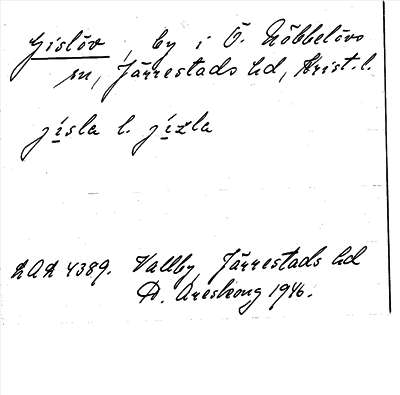 Gislöv, by i Ö. Nöbbelövs
sn, Järrestads hd, Krist. l.
jísla l. jízla
LAL 4389. Vallby, Järrestads hd
D. Areskoug 1946.